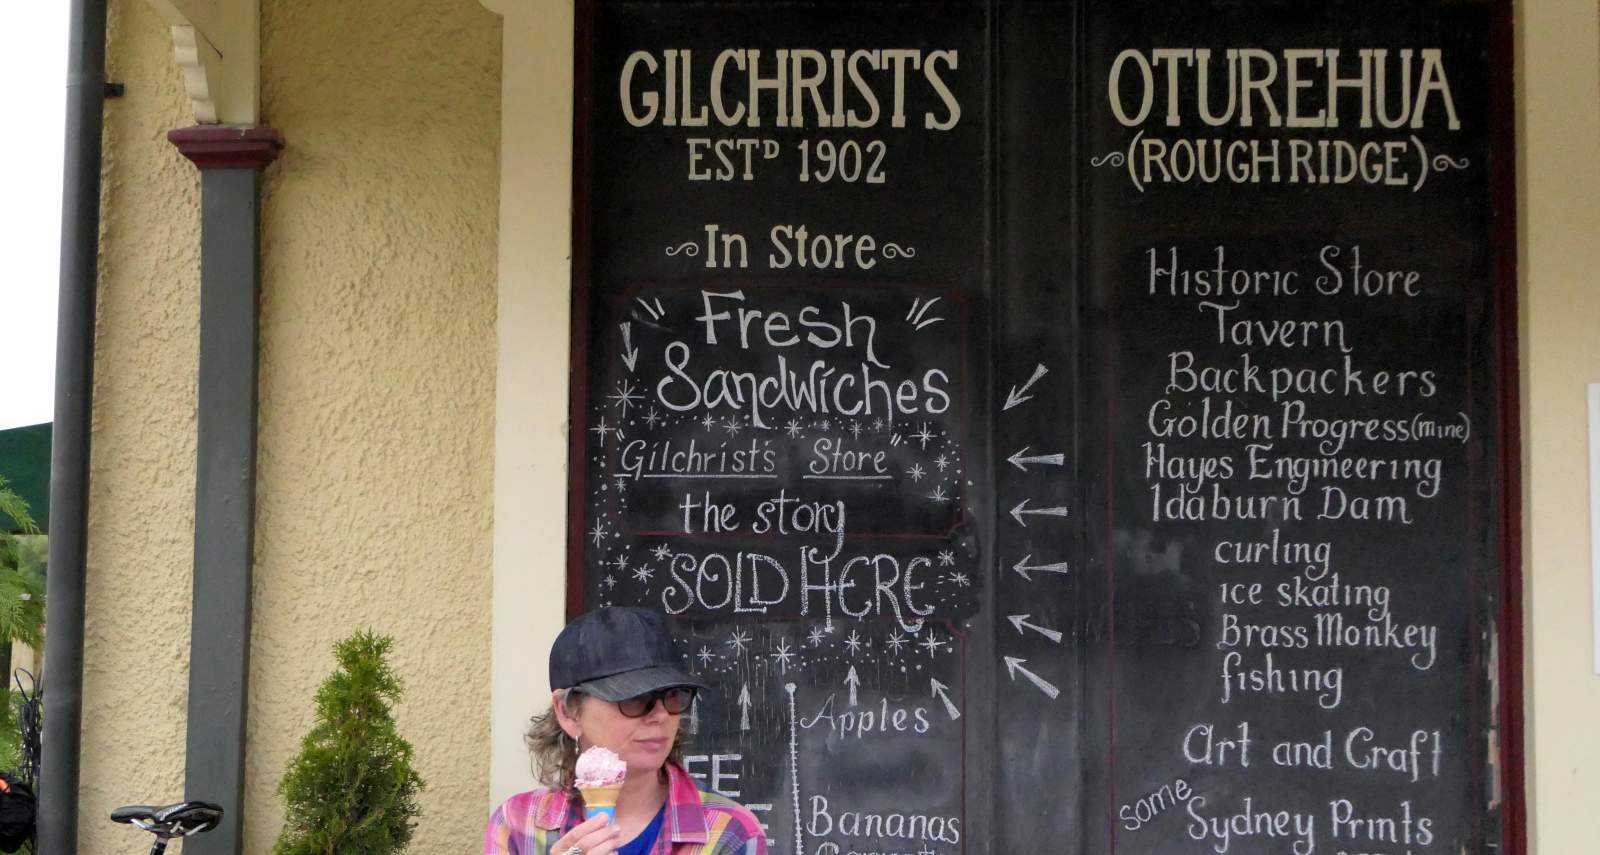 GILCHRISTS
ESTD 1902
In Store
Fresh
Sandwiches
"Gilchrist's Store"
the story
SOLD HERE
Apples
Bananas
OTUREHUA
(ROUGH RIDGE)
Historic Store
Tavern
Backpackers
Golden Progress (mine)
Hayes Engineering
Idaburn Dam
curling
ice skating
Brass Monkey
fishing
Art and Craft
some
Sydney Prints